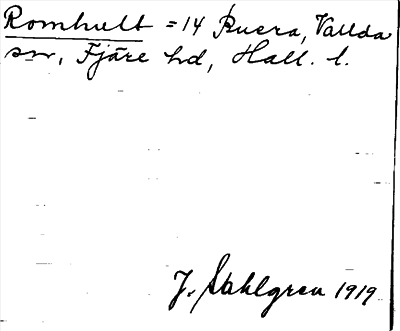 Romhult = 14 Buera, Vallda
sn, Fjäre hd, Hall. l.
J. Sahlgren 1919